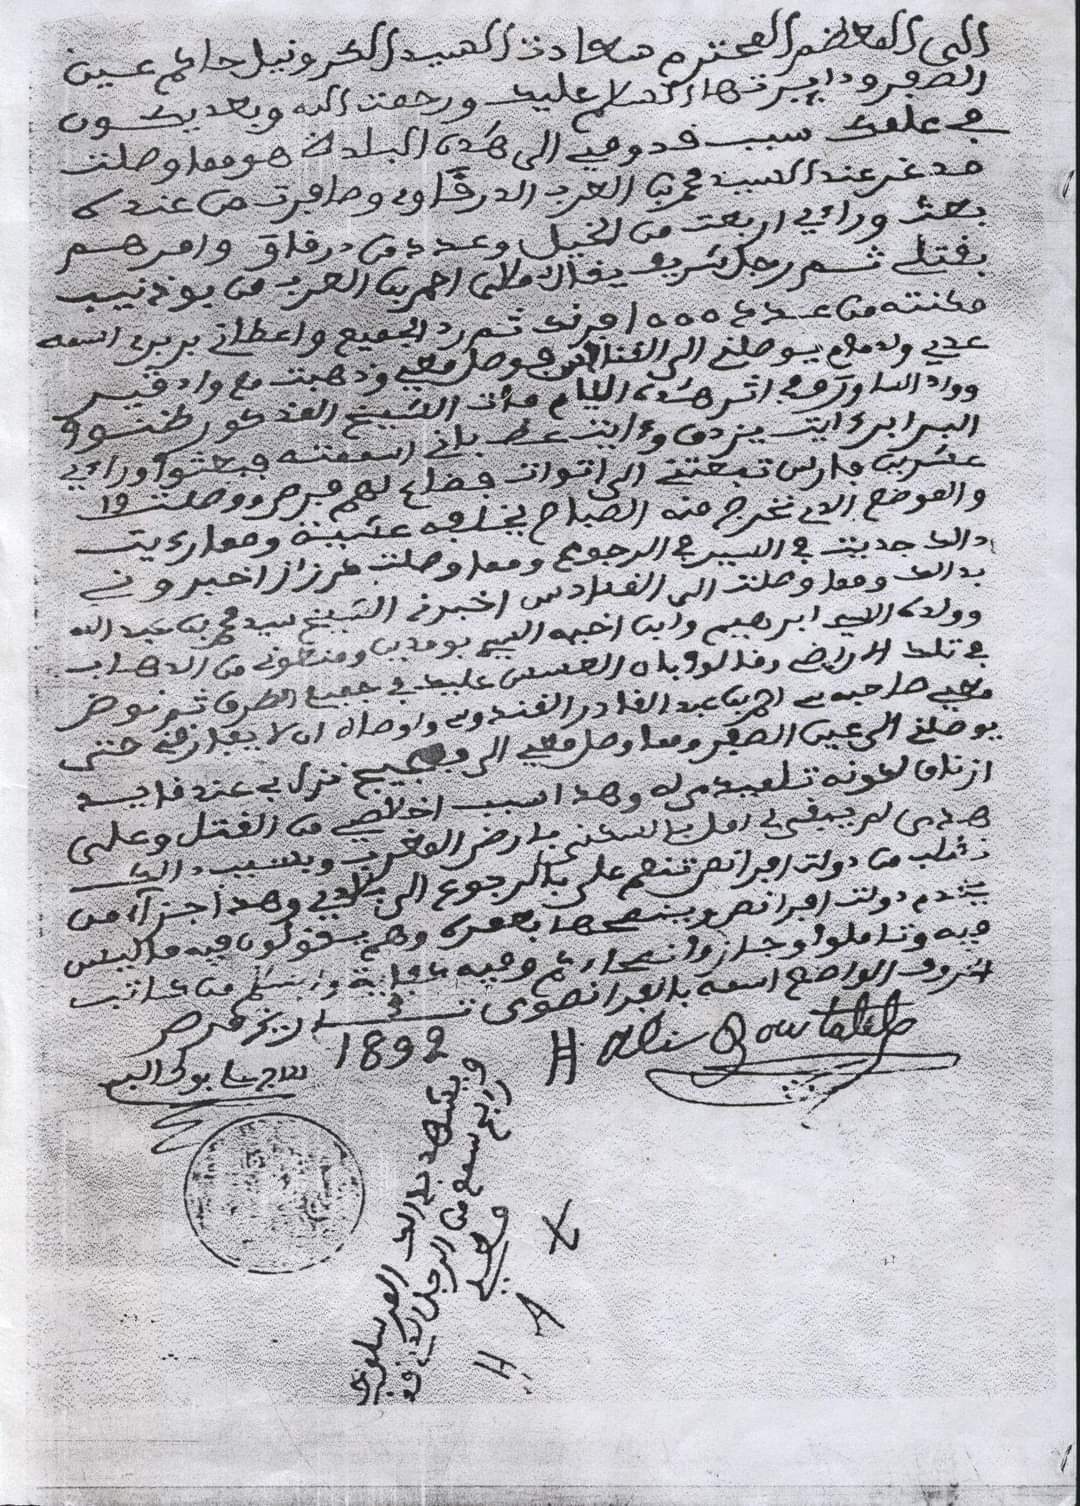 الى المعظم المحترم سعادت السيد الكرونيل حاكم عين
الصفرو دايرتها السلام عليك ورحمت الله وبعد يكون
في علمك سبب قدومي الى هذه البلدة هو مهما وصلت
مدغر عند السيد محمد بن العرب الدرقاوي وصافرت من عنده
بعث ورائي اربعت من الخيل وعدد من درقاق وامرهم
بقتلي ثم رجل شريف يقال له مولى احمد بن العرب من بوذنيب
مكنته من عدد 1000 افرنك ثم رد الجميع واعطاني بربري اسمه
عدي ولد يوصلني الى القنادس فوصل معي وذهبت مع واد قير
وواد الساورة اثر هذه الايام مات الشيخ المذكور طنوا
البرابر ءايت يزدق وءايت عط باني اسممته فبعثوا ورائي
عشرين فارس تبعتني الى اتوات فضاع لهم فرص ووصلت 19
والموضع الذي نخرج منه الصباح يخلفه عشية ومهما رءيت
ذالك جديت في السير في الرجوع ومهما وصلت اخبروني
بذالك ومهما وصلت الى القنادس اخبرني الشيخ سيد محمد بن عبد الله
وولده السيد ابرهيم وابن اخيه السيد بومدين ومنعوني من الذهاب
في تلك الاراضي وقالوا بان العسس عليك في جميع الطرق ثم نوض
معي صاحبه سي احمد بن عبد القادر القندوسي واوصاه ان لا يفارقني حتى
يوصلني الى عين الصفرو ومهما وصل معي الى فجيج نزل بي عند قايد
ازناق لكونه تلميذ مرله وهذا سبب اخلاصي من القتل وعلى
هذا لم يبقى لي امل بالسكنى بارض المغرب وبسبب ذالك
نطلب من دولت افرانص تنعم علي بالرجوع الى بلادي وهذا جزاء من
يخدم دولت افرانص وينصحها بعمره وهم يقولون فيه ما ليس
فيه وتاملوا وجازوا نصحاركم وفيه كفاية والسلم من كاتب
الحروف الواضع اسمه بالفرانصوي تاريخ
1892
H Ali Bowtaleb
ويشهد بذالك المرسلون
رابع سمع من الرجل الذي قد
معي
H A X